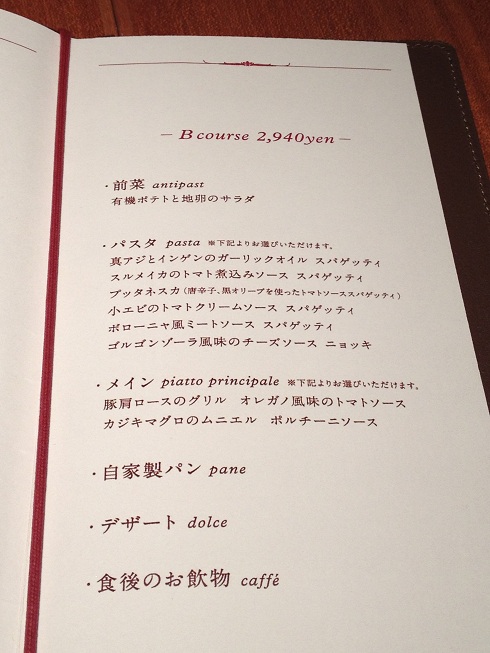 – B course 2,940yen –
・前菜 antipast
有機ポテトと地卵のサラダ
・パスタ pasta ※下記よりお選びいただけます。
真アジとインゲンのガーリックオイル スパゲッティ
スルメイカのトマト煮込みソース スパゲッティ
プッタネスカ（唐辛子、黒オリーブを使ったトマトソーススパゲッティ）
小エビのトマトクリームソース スパゲッティ
ボローニャ風ミートソース スパゲッティ
ゴルゴンゾーラ風味のチーズソース ニョッキ
・メイン piatto principale ※下記よりお選びいただけます。
豚肩ロースのグリル オレガノ風味のトマトソース
カジキマグロのムニエル ポルチーニソース
・自家製パン pane
・デザート dolce
・食後のお飲物 caffé